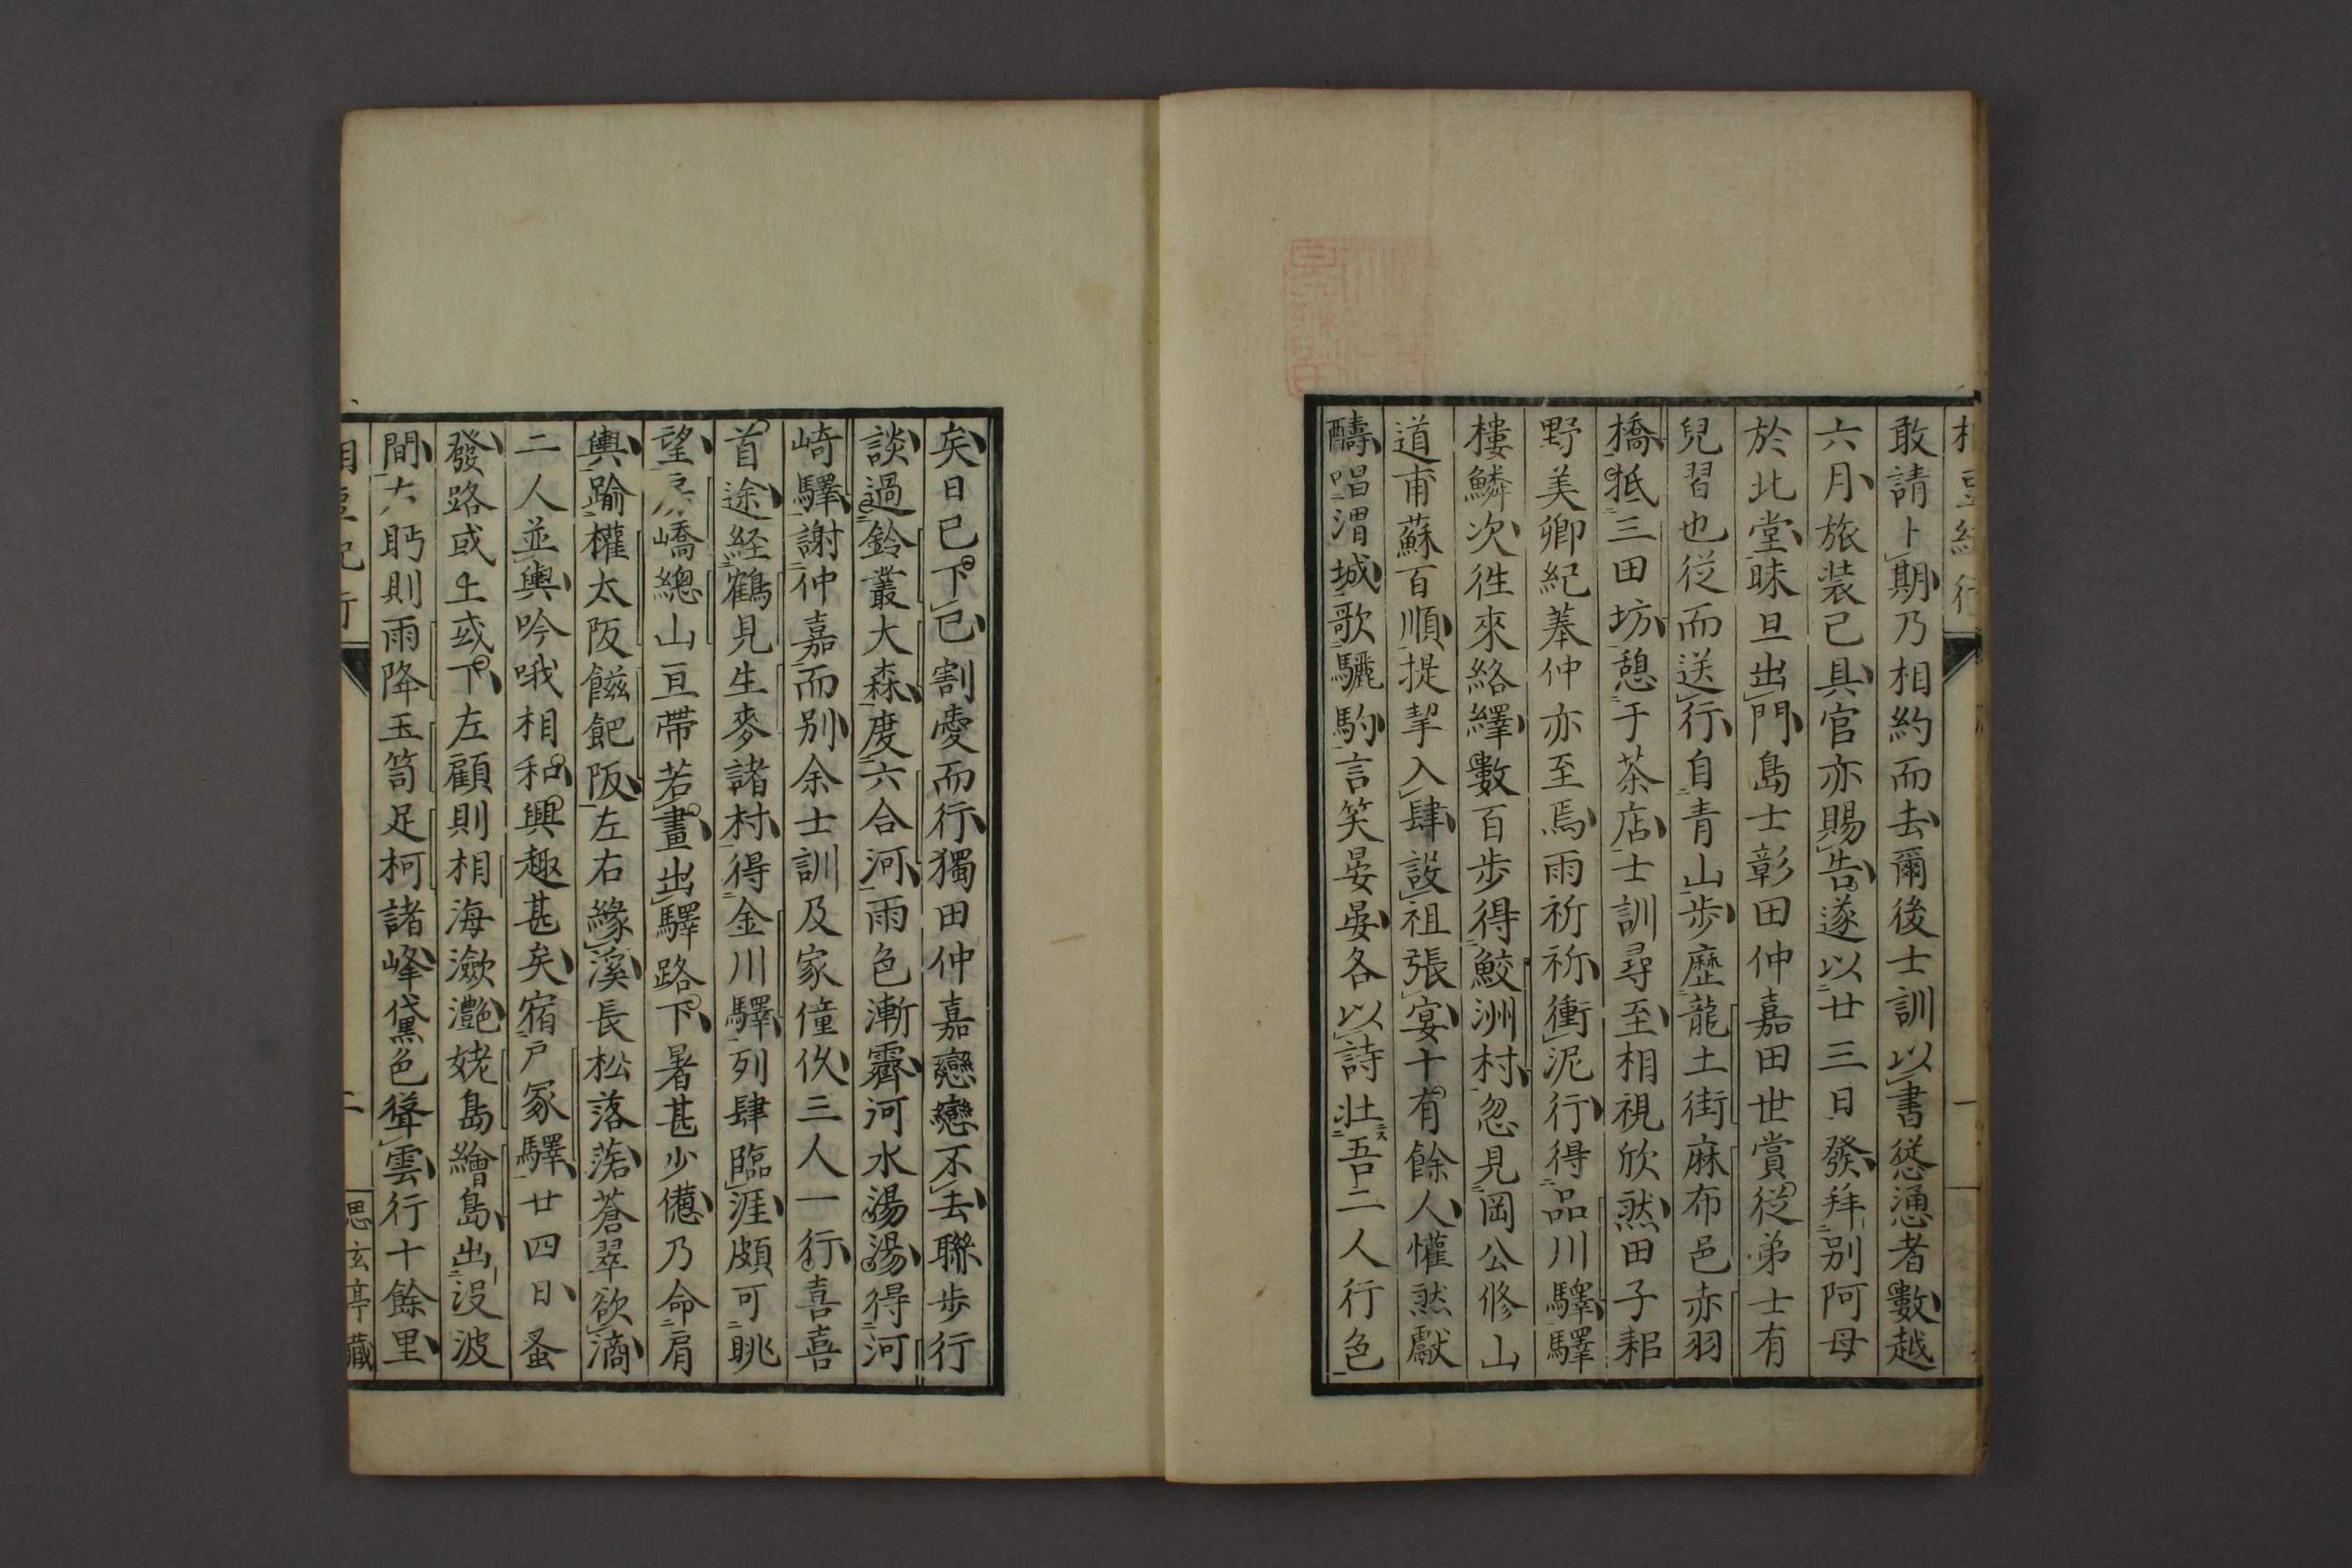 敢請卜期乃相約而去爾後士訓以書慫慂者數越
六月旅装已具官亦賜告遂以廿三日發拜別阿母
於北堂昧旦出門島士彰田仲嘉田世賞從弟士有
兒習也從而送行自青山步歷龍土街麻布邑赤羽
橋抵三田坊憩于茶店士訓尋至相視欣然田子耜
野美卿紀葊仲亦至焉雨祈祈衝泥行得品川驛驛
樓鱗次徃來絡繹數百步得鮫洲村忽見岡公修山
道甫蘇百順提挈入肆設祖張宴十有餘人懽然獻
醻唱渭城歌驪駒言笑晏晏各以詩壯吾二人行色
矣日已下已割愛而行獨田仲嘉戀戀不去聯步行
談過鈴叢大森度六合河雨色漸霽河水湯湯得河
崎驛謝仲嘉而別余士訓及家僮佚三人一行喜喜
首途経鶴見生麥諸村得金川驛列肆臨涯頗可眺
望房嶠總山亘帶若畫出驛路下暑甚少憊乃命肩
輿踰權太阪餈飽阪左右緣溪長松落落蒼翠欲滴
二人並輿吟哦相和興趣甚矣宿戸冢驛廿四日蚤
發路或上或下左顧則相海瀲灔姥島繪島出沒波
間右眄則雨降玉笥足柯諸峰黛色聳雲行十餘里
相豆紀行
二
思玄亭藏